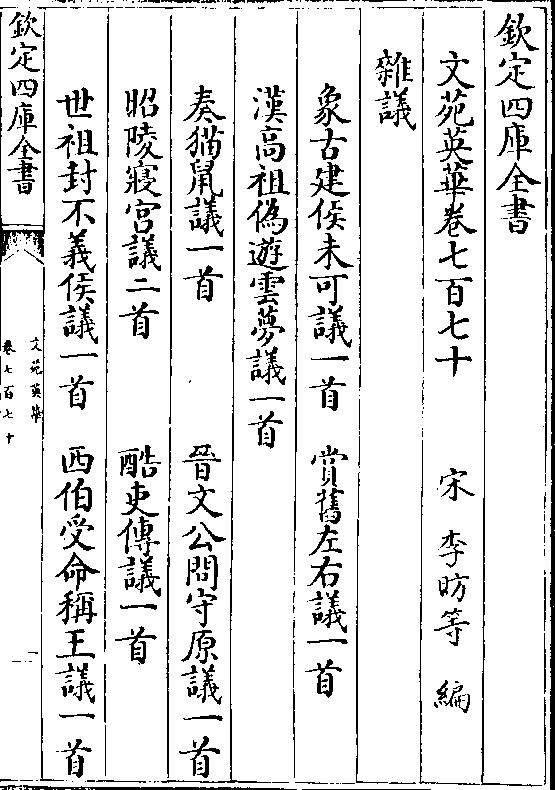 欽定四庫全書
文苑英華卷七百七十　宋　李昉等　編
雜議
象古建侯未可議一首　賞舊左右議一首
漢高祖偽遊雲夢議一首
奏猫鼠議一首　晉文公問守原議一首
昭陵寢宮議二首　酷吏傳議一首
世祖封不義侯議一首　西伯受命稱王議一首
欽定四庫全書
文苑英華
卷七百七十
一